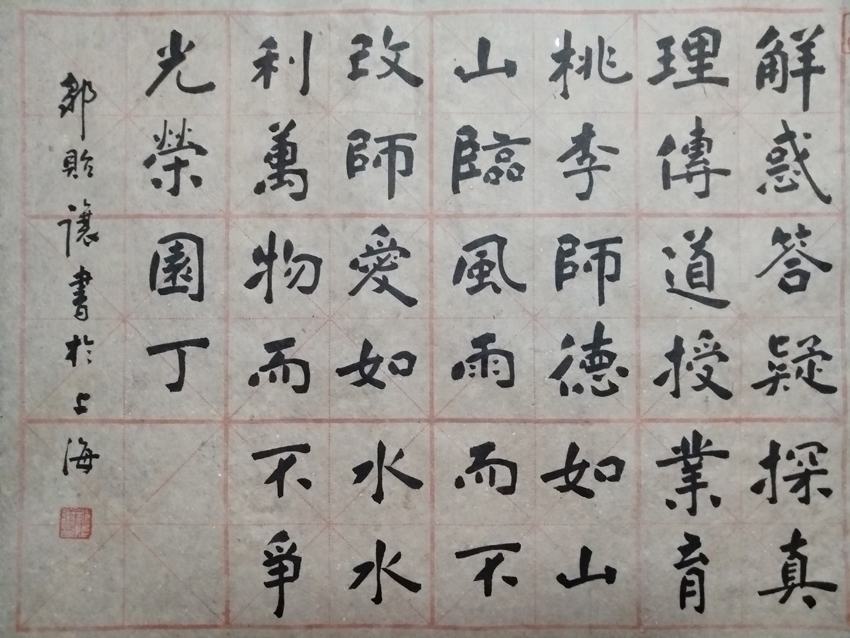 解惑答疑探真
理傳道授業育
桃李師德如山
山臨風雨而不
改師愛如水水
利萬物而不爭
光榮園丁
鄒貽讓書於上海